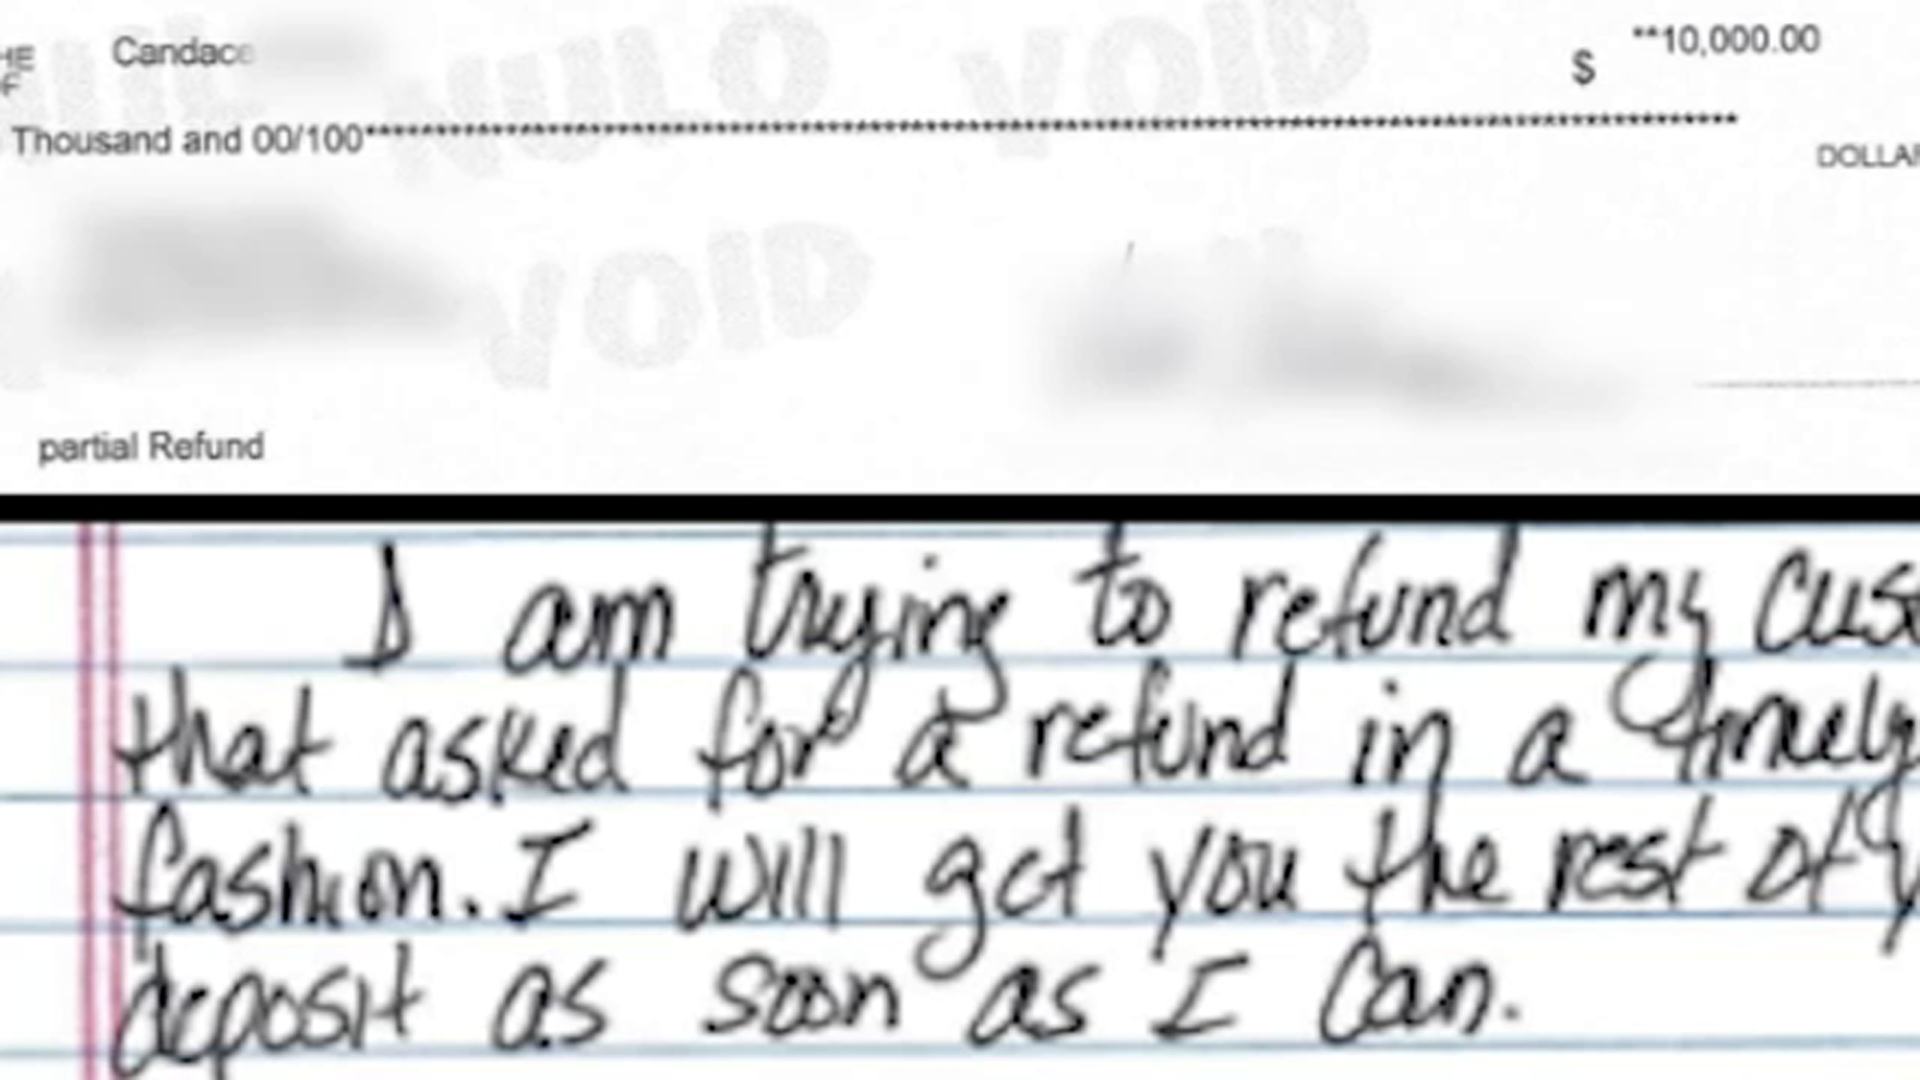 Candace
$ **10,000.00
Thousand and 00/100************************************************************
DOLLAR
NULO VOID
VOID
partial Refund
I am trying to refund my cus
that asked for a refund in a timely
fashion. I will get you the rest of y
deposit as soon as I can.